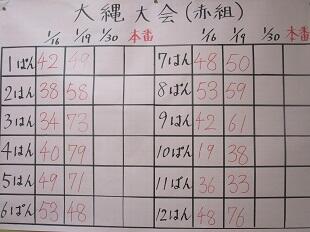 大縄大会(赤組)
1/16 1/19 1/30 本番 1/16 1/19 1/30 本番
1ぱん 42 49 7はん 48 50
2はん 38 58 8ぱん 53 59
3はん 34 73 9はん 42 61
4はん 40 79 10ぱん 19 38
5はん 49 71 11ぱん 36 33
6ぱん 53 48 12はん 48 76